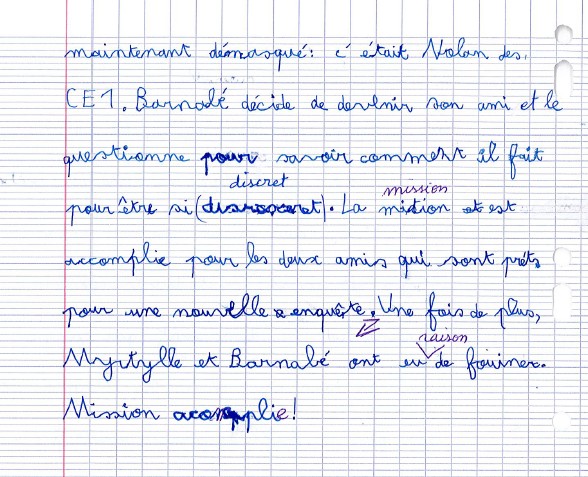 maintenant démasqué : c'était Nolan des
CE1. Barnabé décide de devenir son ami et le
questionne pour savoir comment il fait
discret
mission
pour être si ( ). La mistion et est
accomplie pour les deux amis qui sont prêts
pour une nouvelle enquête. Une fois de plus,
raison
Myrtylle et Barnabé ont eu de fouiner.
Mission acomplie !